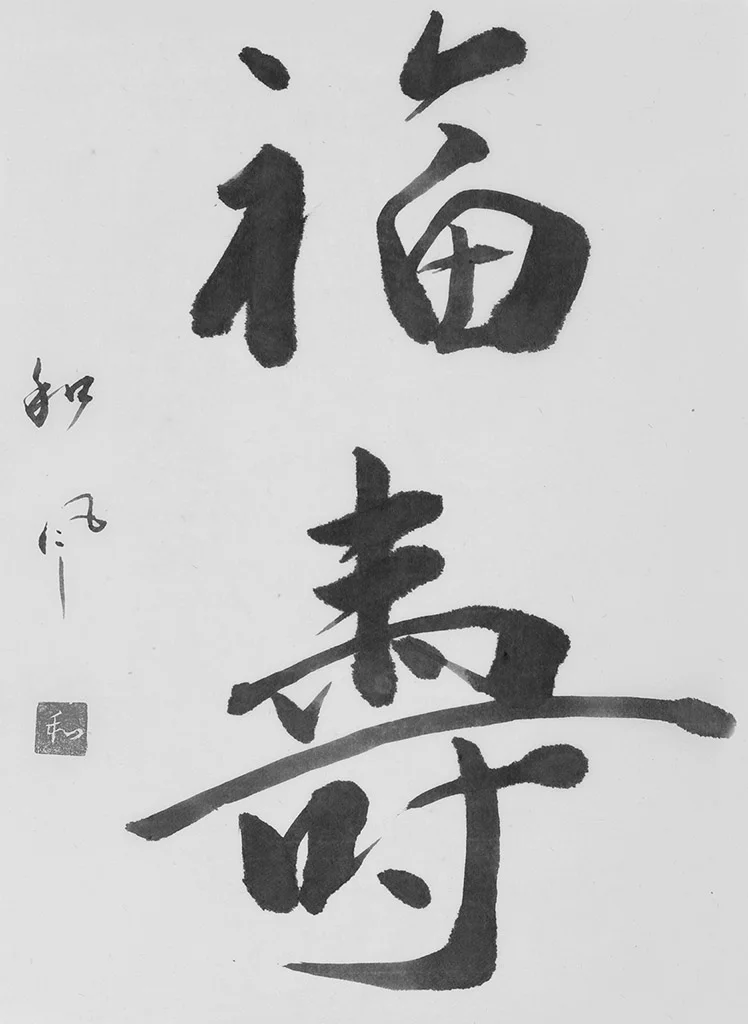 福壽
和
和